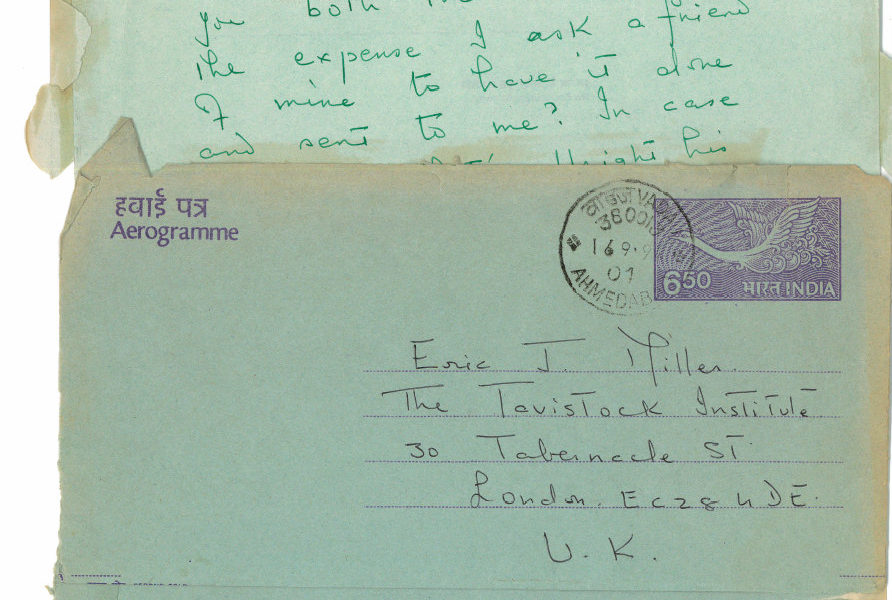 you both the
the expense I ask a friend
of mine to have it done
and sent to me? In case
his
हवाई पत्र
Aerogramme
380015
16 9.9
07
AHMEDAB
6.50
भारत INDIA
Eric J. Miller.
The Tavistock Institute
30 Tabernacle ST.
London. EC2 4DE.
U.K.